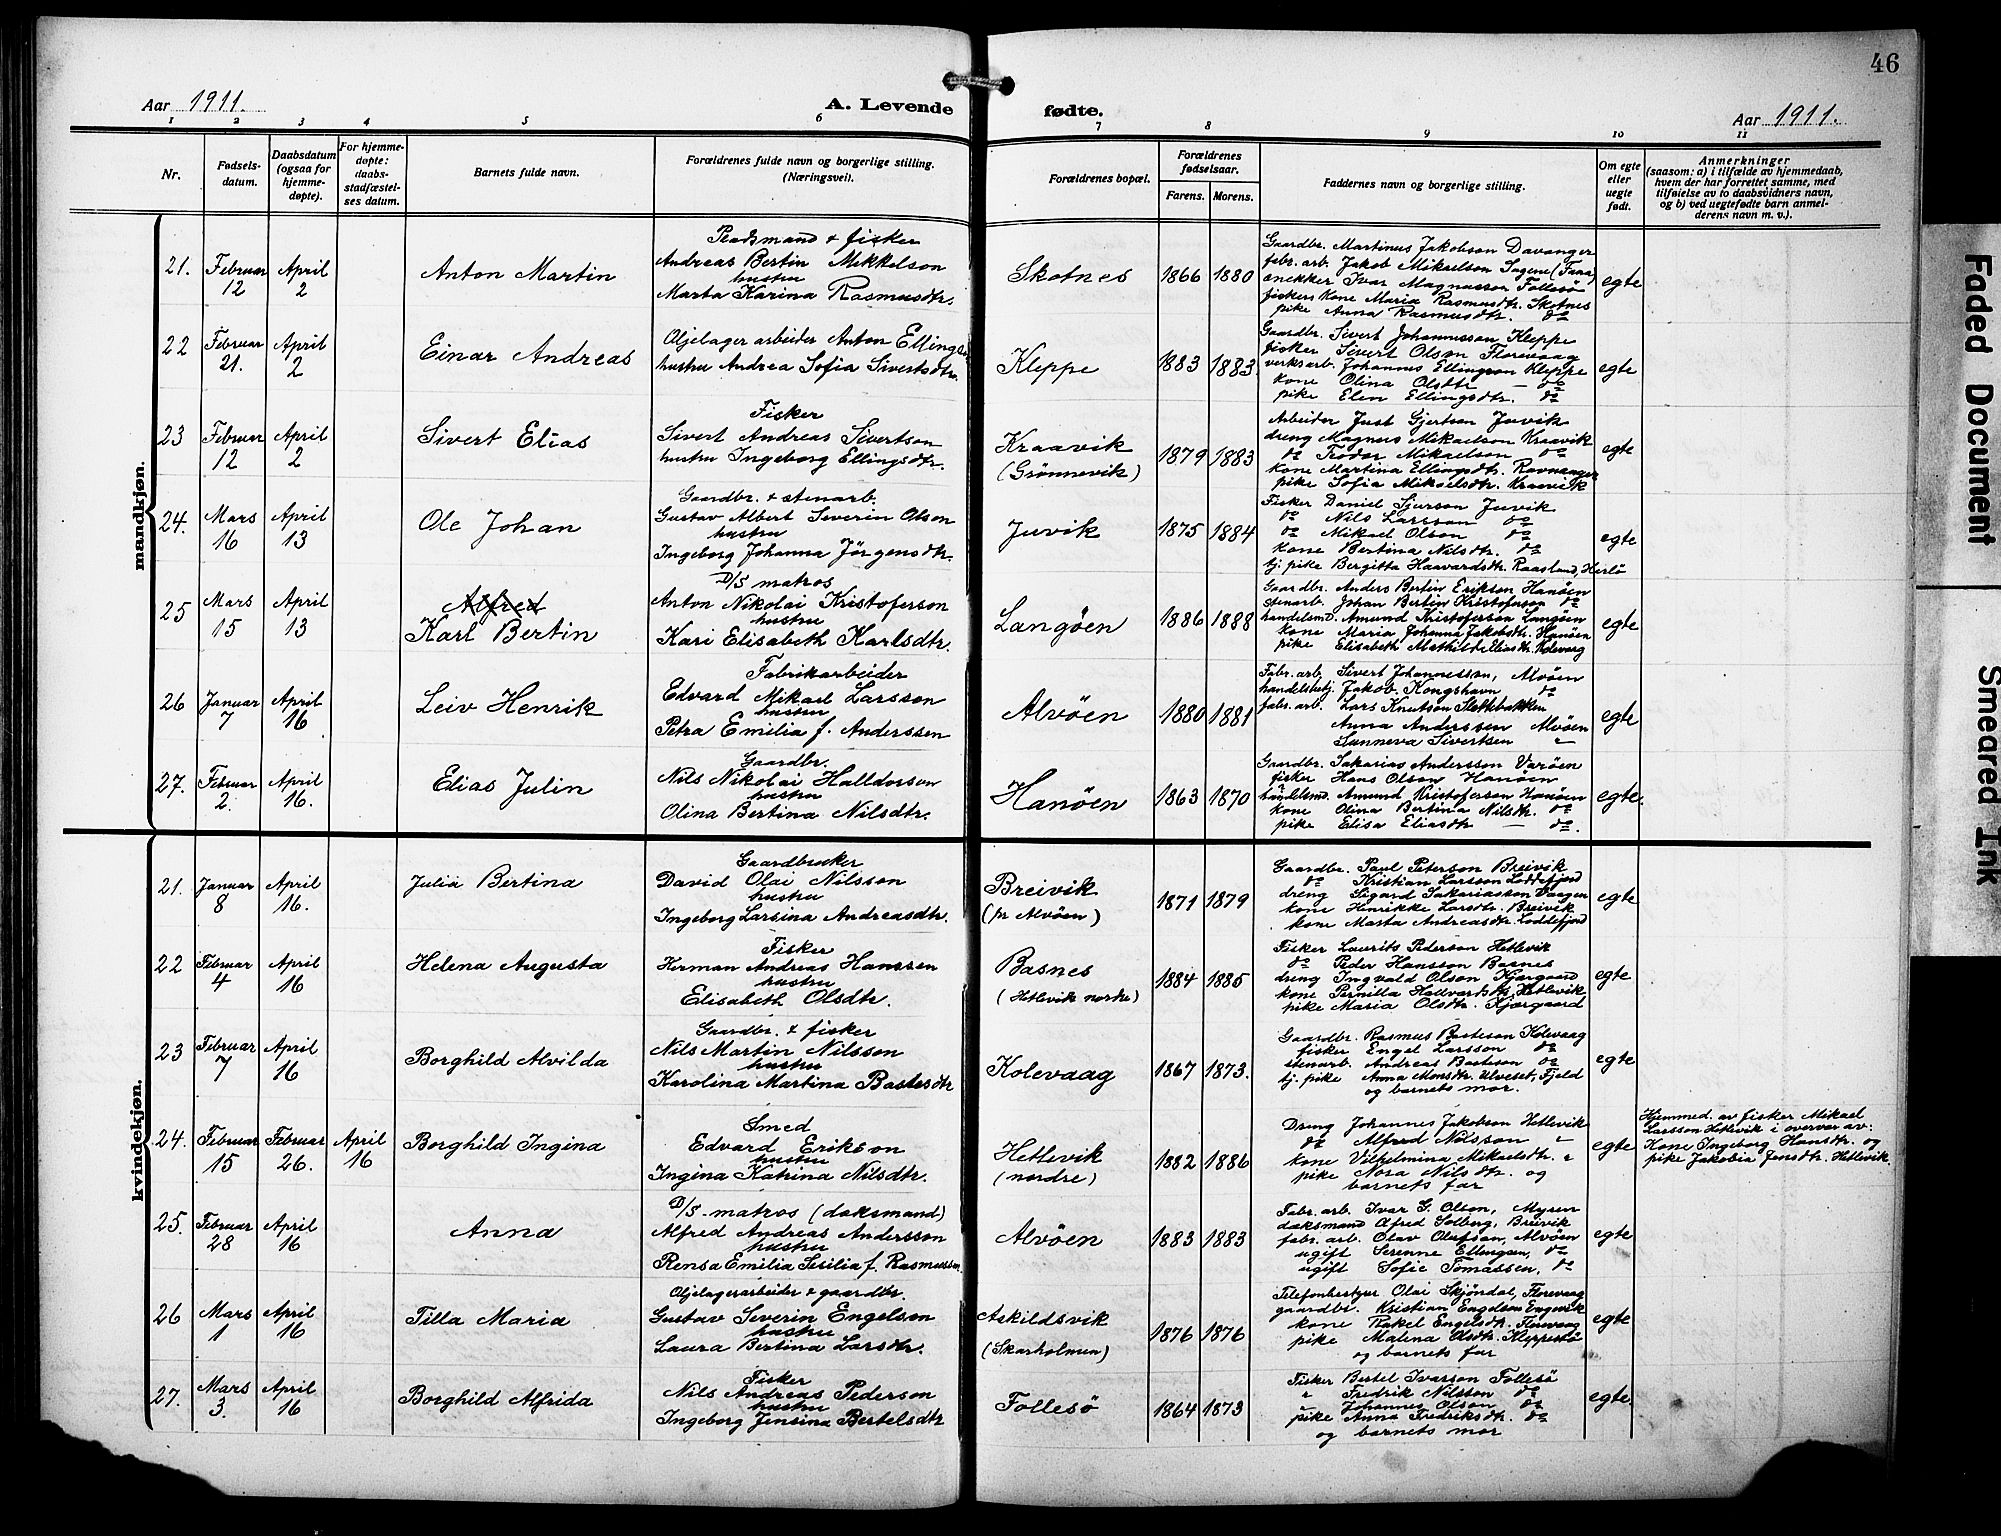 46
Aar 1911.
A. Levende fødte.
Aar 1911.
1 2 3 4 5 6 7 8 9 10 11
Nr.
Fødsels-
datum.
Daabsdatum
(ogsaa for
hjemme-
døpte).
For hjemme-
døpte:
daabs-
stadfæstel-
ses datum.
Barnets fulde navn.
Forældrenes fulde navn og borgerlige stilling.
(Næringsvei).
Forældrenes bopæl.
Forældrenes
fødselsaar.
Farens. Morens.
Faddernes navn og borgerlige stilling.
Om egte
eller
uegte
født.
Anmerkninger
(saasom: a) i tilfælde av hjemmedaab,
hvem der har forrettet samme, med
tilføielse av to daabsvidners navn,
og b) ved uegtefødte barn anmel-
derens navn m. v.).
mandkjøn.
21.
Februar
12
April
2
Anton Martin
Pladsmand & fisker
Andreas Bertin Mikkelson
hustru
Marta Karina Rasmusdtr.
Skotnes
1866 1880
Gaardbr. Martinus Jakobson Davanger
fabr. arb. Jakob Mikaelson Sagene (Fana)
snekker Ivar Magnusson Follesö
fiskers kone Maria Rasmusdtr. Skotnes
pike Anna Rasmusdtr. do
egte
22
Februar
21.
April
2
Einar Andreas
Oljelager arbeider Anton Ellingsen
hustru Andrea Sofia Sivertsdtr.
Kleppe
1883 1883.
Gaardbr. Sivert Johannesson Kleppe
fisker Sivert Olson Florevaag
verksarb. Johannes Ellingson Kleppe
kone Olina Olsdtr — do
pike Elen Ellingsdtr. do
egte
23
Februar
12
April
2
Sivert Elias
Fisker
Sivert Andreas Sivertson
hustru Ingeborg Ellingsdtr.
Kraavik
(Grönnevik)
1879 1883
Arbeider Just Gjertson Juvik
dreng Magnus Mikaelson Kraavik
do Teodor Mikaelson do
kone Martina Ellingsdtr. Ravnanger
pike Sofia Mikaelsdtr. Kraavik
egte
24.
Mars
16
April
13
Ole Johan
Gaardbr. & stenarb.
Gustav Albert Severin Olson
hustru
Ingeborg Johanna Jörgensdtr.
Juvik
1875 1884
Fisker Daniel Sjurson Juvik
do Nils Larsson do
do Mikael Olson do
kone Bertina Nilsdtr. do
tj. pike Bergitta Haavardsdtr. Raasland, Herlö
egte
25
Mars
15
April
13
Alfred
Karl Bertin
D/S matros
Anton Nikolai Kristoferson
hustru
Kari Elisabeth Karlsdtr.
Langöen
1886 1888
Gaardbr. Anders Bertin Erikson Hanöen
stenarb. Johan Bertin Kristoferson do
handelsmd. Amund Kristoferson Langöen
kone Maria Johanna Jakobsdtr. Hanöen
pike Elisabeth Mathilde Eliasdtr. Kolevaag
egte
26
Januar
7
April
16
Leiv Henrik
Fabrikarbeider
Edvard Mikael Larsson
hustru
Petra Emilia f. Anderssen
Alvöen
1880 1881
Fabr. arb. Sivert Johannessen, Alvöen
handelsbetj. Jakob Kongshavn do
fabr. arb. Lars Knutson Slettebakken
Anna Anderssen Alvöen
Sunneva Sivertsen "
egte
27.
Februar
2.
April
16.
Elias Julin
Gaardbr.
Nils Nikolai Halldorson
hustru
Olina Bertina Nilsdtr.
Hanöen
1863 1870
Gaardbr. Sakarias Andersson Varöen
fisker Hans Olson Hanöen
handelsmd. Amund Kristoferson Hanöen
kone Olina Bertina Nilsdtr. do
pike Elisa Eliasdtr — do.
egte.
kvindekjøn.
21.
Januar
8
April
16.
Julia Bertina
Gaardbruker
David Olai Nilsson
hustru
Ingeborg Larsina Andreasdtr.
Breivik
(pr Alvöen)
1871 1879
Gaardbr. Paul Peterson Breivik
do Kristian Larsson Loddefjord
dreng Sigard Sakariasson Vaagen
kone Henrikke Larsdtr. Breivik
kone Marta Andreasdtr. Loddefjord
egte
22
Februar
4
April
16
Helena Augusta
Fisker
Herman Andreas Hanssen
hustru
Elisabeth Olsdtr.
Basnes
(Hetlevik nordre)
1884 1885
Fisker Laurits Pederson Hetlevik
do Peder Hansson Basnes
dreng Ingvald Olson Kjærgaard
kone Pernilla Hallvardsdtr. Hetlevik
pike Maria Olsdtr. Kjærgaard
egte
23
Februar
7
April
16
Borghild Alvilda
Gaardbr. & fisker
Nils Martin Nilsson
hustru
Karolina Martina Bastesdtr
Kolevaag
1867 1873.
Gaardbr. Rasmus Basteson Kolevaag
fisker Engel Larsson do
stenarb. Andreas Basteson do
tj. pike Anna Monsdtr. Ulveset, Fjeld
og barnets mor.
egte
24.
Februar
15
Februar
26.
April
16
Borghild Ingina
Smed
Edvard Erikson
hustru
Ingina Katrina Nilsdtr.
Hetlevik
(nordre)
1882 1886
Dreng Johannes Jakobson Hetlevik
do Alfred Nilsson "
kone Vilhelmina Mikaelsdtr. "
pike Nora Nilsdtr. og
barnets far
egte
Hjemmed. av fisker Mikael
Larsson Hetlevik i overvær av:
Kone Ingeborg Hansdtr. og
pike Jakobia Jensdtr. Hetlevik.
25.
Februar
28
April
16
Anna
D/S-matros (daksmand)
Alfred Andreas Andersson
hustru
Rensa Emilia Sesilia f. Rasmussen.
Alvöen
1883 1883
Fabr. arb. Ivar G. Olson, Myren
daksmand Alfred Solberg, Breivik
fabr. arb. Olav Olafson, Alvöen
ugift Serenne Ellingsen, do
ugift Sofie Tomassen, do
egte
26
Mars
1
April
16
Tilla Maria
Oljelagerarbeider & gaardbr.
Gustav Severin Engelson
hustru
Laura Bertina Larsdtr.
Askildsvik
(Skarholmen)
1876 1876
Telefonbestyrer Olai Skjöndal, Florevaag
gaardbr. Kristian Engelson Engevik
kone Rakel Engelsdtr. Florevaag
pike Malena Olsdtr. Kleppestö
og barnets far
egte
27.
Mars
3.
April
16
Borghild Alfrida
Fisker
Nils Andreas Pederson
hustru
Ingeborg Jensina Bertelsdtr
Follesö
1864 1873
Fisker Bertel Ivarson Follesö
" Fredrik Nilsson do
" Johannes Olson do
pike Anna Fredriksdtr. do
og barnets mor
egte.
Faded Document
Smeared Ink